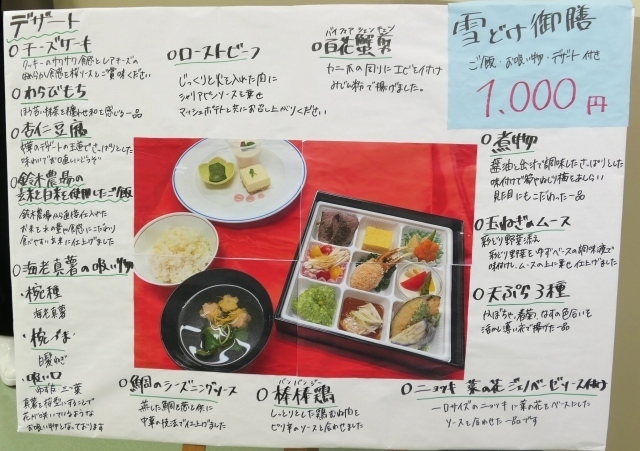 デザート
○チーズケーキ
クッキーのサクサク食感としてチーズの
なめらか食感を桜ソースとご賞味ください
○わらびもち
○杏仁豆腐
味わいでお口直しどうぞ
○鈴木農場の
玄米と白米を使用したご飯
鈴木農場から直接仕入れた
お米を水の量や食感にこだわり
食べやすいように仕上げました
○海老真薯の吸い物
・椀種
海老真薯
・椀づま
白髪ねぎ
・吸い口
真薯を桜型にすることで
花が咲いているような
お吸い物になっております
○ローストビーフ
じっくりと火を入れた肉に
シャリアピンソースを乗せ
マッシュポテトと共にお召し上がりください
パイファ ジェン ヂェン
○百花蟹
カニ爪の周りにエビを付け
みじん粉で揚げました。
雪どけ御膳
ご飯・お吸い物・デザート付き
1,000円
○煮物
醤油と出汁で調味したさっぱりとした
味付けで筍やねじり梅をあしらい
見た目にもこだわった一品
○玉ねぎのムース
彩どり野菜添え
彩どり野菜をゆずベースの調味液で
味付けし、ムースの上に乗せ仕上げました
○天ぷら3種
かぼちゃ、春菊、なすの色合いを
活かし薄い衣で揚げた一品
○鯛のシーズニングソース
蒸した鯛を葱と共に
中華の技法で仕上げました
バンバンジー
○棒棒鶏
しっとりとした鶏むね肉を
ピリ辛のソースと合わせました
○ニョッキ 菜の花ジェノベーゼソース付け
一口サイズのニョッキに菜の花をベースにした
ソースと合わせた一品です